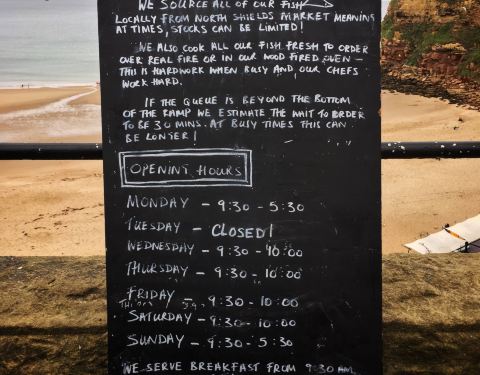 WE SOURCE ALL OF OUR FISH
LOCALLY FROM NORTH SHIELDS MARKET MEANING
AT TIMES, STOCKS CAN BE LIMITED!
WE ALSO COOK ALL OUR FISH FRESH TO ORDER
OVER REAL FIRE OR IN OUR WOOD FIRED OVEN -
THIS IS HARDWORK WHEN BUSY AND, OUR CHEFS
WORK HARD.
IF THE QUEUE IS BEYOND THE BOTTOM
OF THE RAMP WE ESTIMATE THE WAIT TO ORDER
TO BE 30 MINS. AT BUSY TIMES THIS CAN
BE LONGER!
OPENING HOURS
MONDAY - 9:30 - 5:30
TUESDAY - CLOSED!
WEDNESDAY - 9:30 - 10:00
THURSDAY - 9:30 - 10:00
FRIDAY - 9:30 - 10:00
SATURDAY - 9:30 - 10:00
SUNDAY - 9:30 - 5:30
WE SERVE BREAKFAST FROM 9:30 AM,